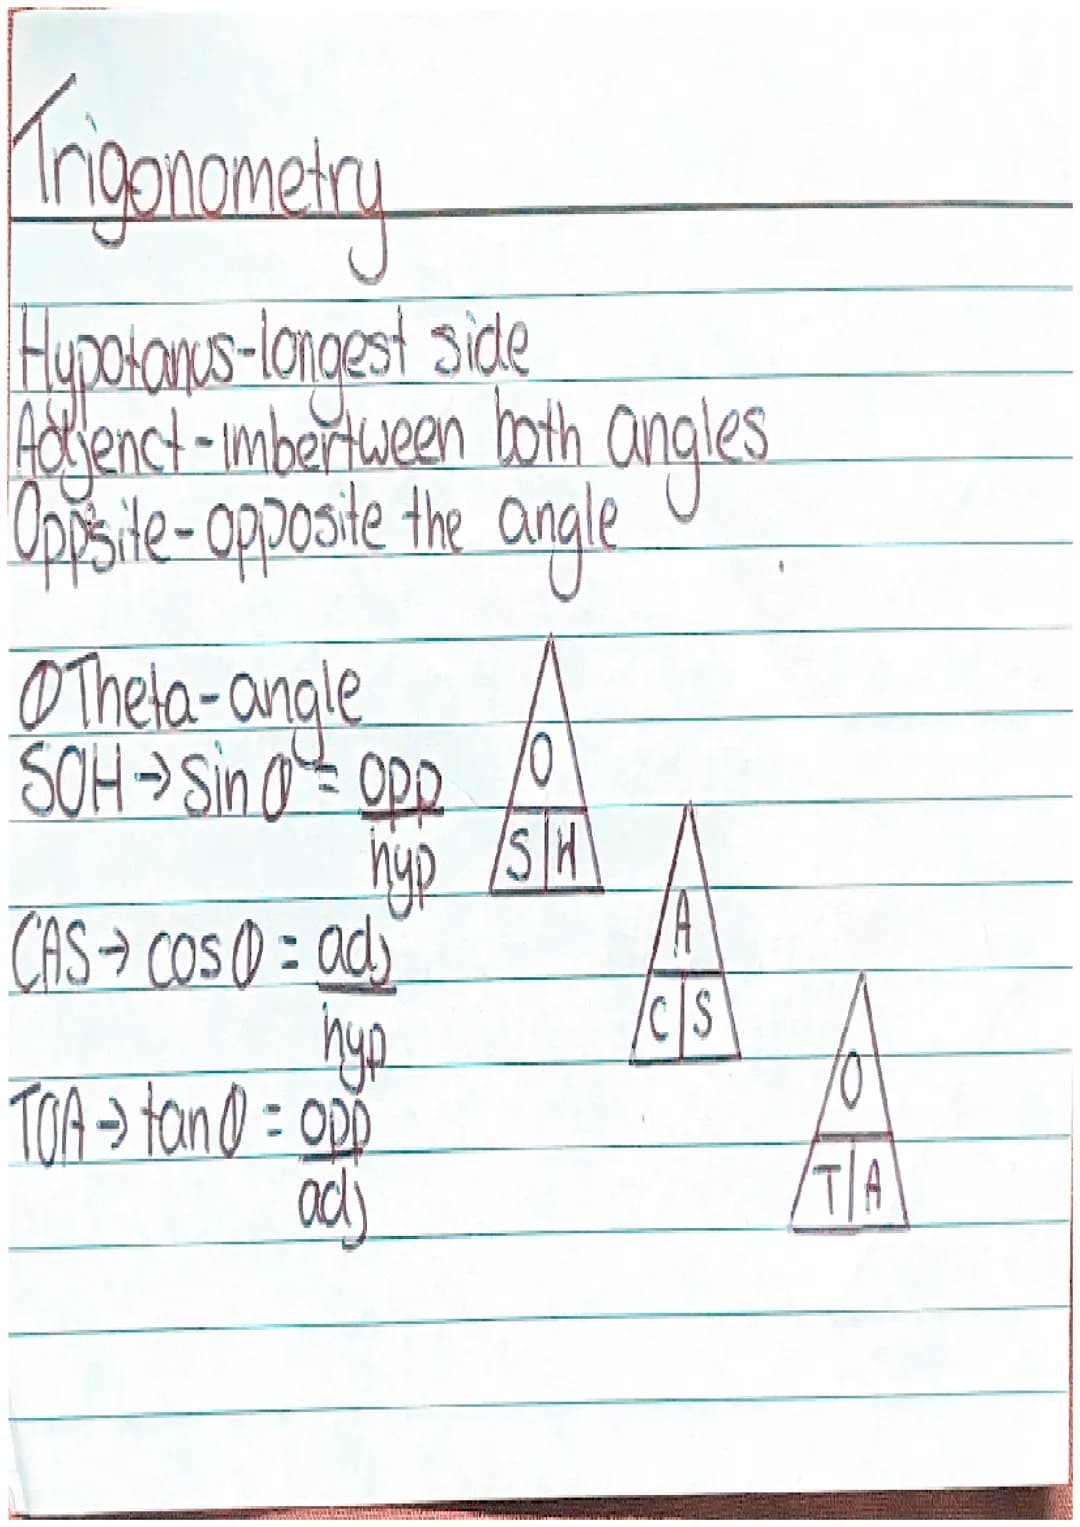 Trigonometry
Hypotanus-longest side
Adjenct-imbertween both angles
Oppsite-opposite the angle
θ Theta-angle
SOH→ sin θ = opp
hyp
O
S H
CAS→ cos θ = adj
hyp
A
C S
TOA→ tan θ = opp
adj
O
T A